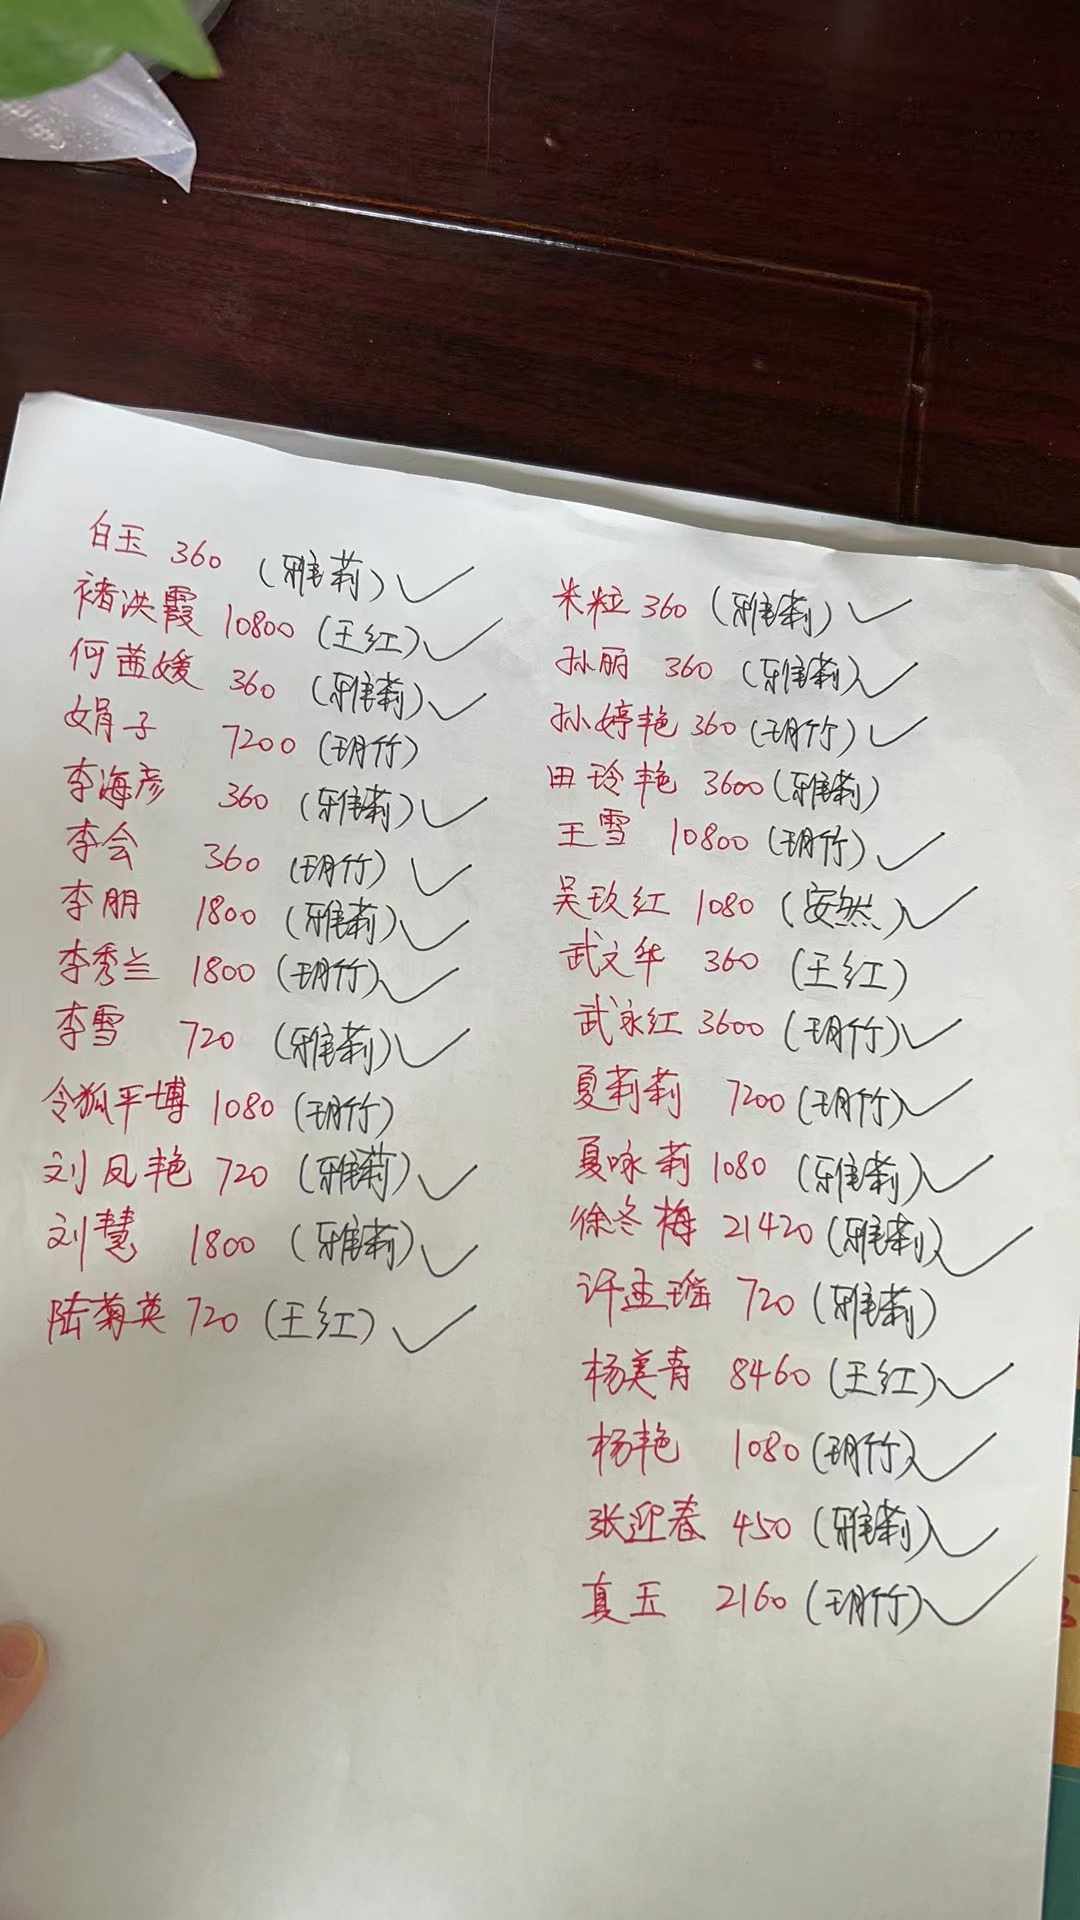 白玉 360 (雅莉) ✓
褚洪霞 10800 (王红) ✓
何茜媛 360 (雅莉) ✓
娟子 7200 (玥竹)
李海彦 360 (雅莉) ✓
李会 360 (玥竹) ✓
李朋 1800 (雅莉) ✓
李秀兰 1800 (玥竹) ✓
李雪 720 (雅莉) ✓
令狐平博 1080 (玥竹)
刘凤艳 720 (雅莉) ✓
刘慧 1800 (雅莉) ✓
陆菊英 720 (王红) ✓
米粒 360 (雅莉) ✓
孙丽 360 (雅莉) ✓
孙婷艳 360 (玥竹) ✓
田玲艳 3600 (雅莉)
王雪 10800 (玥竹) ✓
吴玫红 1080 (安然) ✓
武文华 360 (王红)
武永红 3600 (玥竹) ✓
夏莉莉 7200 (玥竹) ✓
夏咏莉 1080 (雅莉) ✓
徐冬梅 21420 (雅莉) ✓
许孟瑶 720 (雅莉)
杨美青 8460 (王红) ✓
杨艳 1080 (玥竹) ✓
张迎春 450 (雅莉) ✓
真玉 2160 (玥竹) ✓